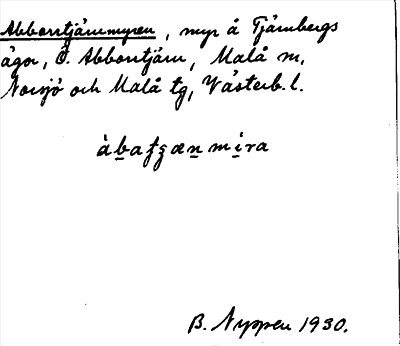 Abborrtjärnmyren, myr å Tjärnbergs
ägor, Ö. Abborrtjärn, Malå sn,
Norsjö och Malå tg, Västerb. l.
B. Nyppen 1930.